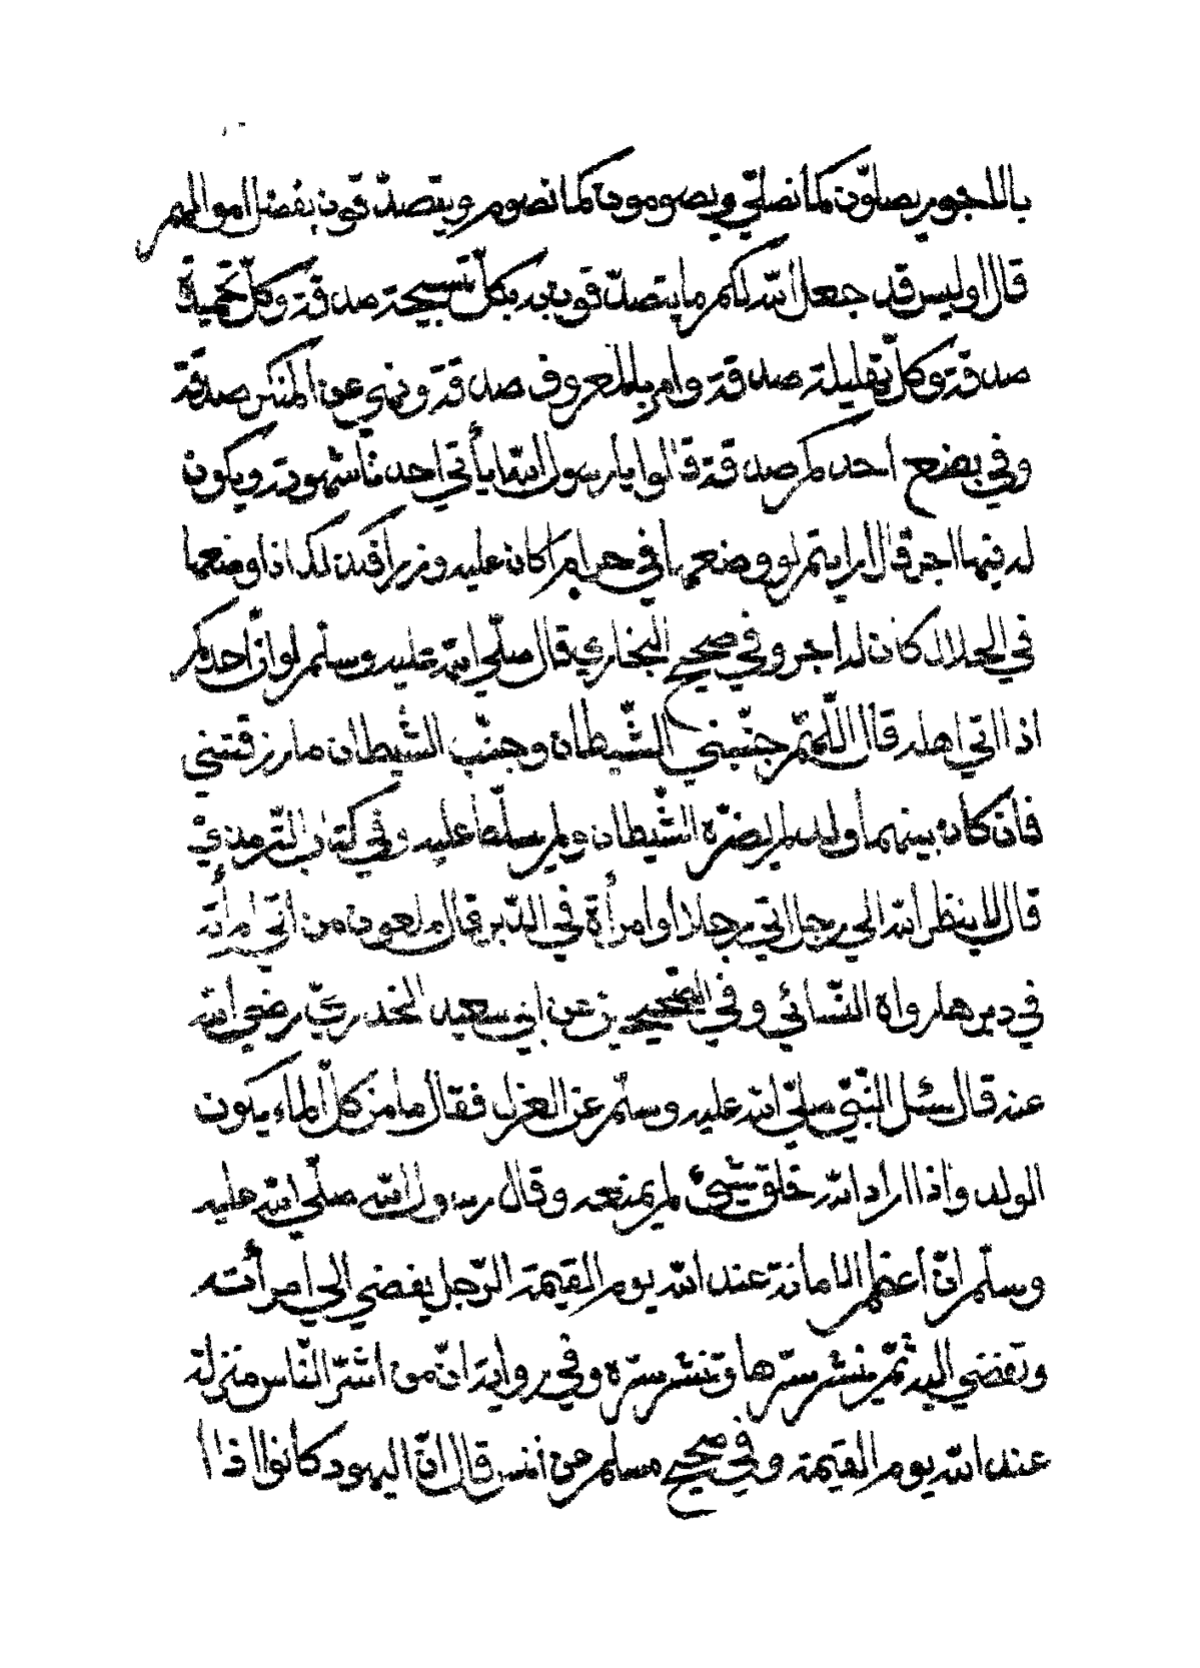 بالاجور يصلّون كما نصلّي ويصومون كما نصوم ويتصدّقون بفضل اموالهم
قال اوليس قد جعل الله لكم ما يتصدّقون به بكلّ تسبيحة صدقة وكلّ تحميدة
صدقة وكلّ تهليلة صدقة وامر بالمعروف صدقة ونهي عن المنكر صدقة
وفي بضع احدكم صدقة قالوا يا رسول الله ايأتي احدنا شهوته ويكون
له فيها اجر قال ارايتم لو وضعها في حرام اكان عليه وزر افكذلك اذا وضعها
في الحلال كان له اجر وفي صحيح البخاري قال صلّي الله عليه وسلّم لو انّ احدكم
اذا اتي اهله قال اللّهمّ جنّبني الشّيطان وجنّب الشّيطان ما رزقتني
فان كان بينهما ولد لم يضرّه الشّيطان ولم يسلّط عليه وفي كتاب التّرمذيّ
قال لا ينظر الله الي رجل اتي رجلا او امرأة في الدّبر قال ملعون من اتي امرأته
في دبرها رواه النّسائي وفي الصّحيحين عن ابي سعيد الخدريّ رضي الله
عنه قال سئل النّبيّ صلّي الله عليه وسلّم عن العزل فقال ما من كلّ الماء يكون
الولد واذا اراد الله خلق شيئ لم يمنعه وقال رسول الله صلّي الله عليه
وسلّم انّ أعظم الامانة عند الله يوم القيمة الرّجل يفضي الي امرأته
وتفضي اليه ثمّ ينشر سرّها وتنشر سرّه وفي رواية انّ من اشرّ النّاس منزلة
عند الله يوم القيمة وفي صحيح مسلم عن انس قال انّ اليهود كانوا اذا